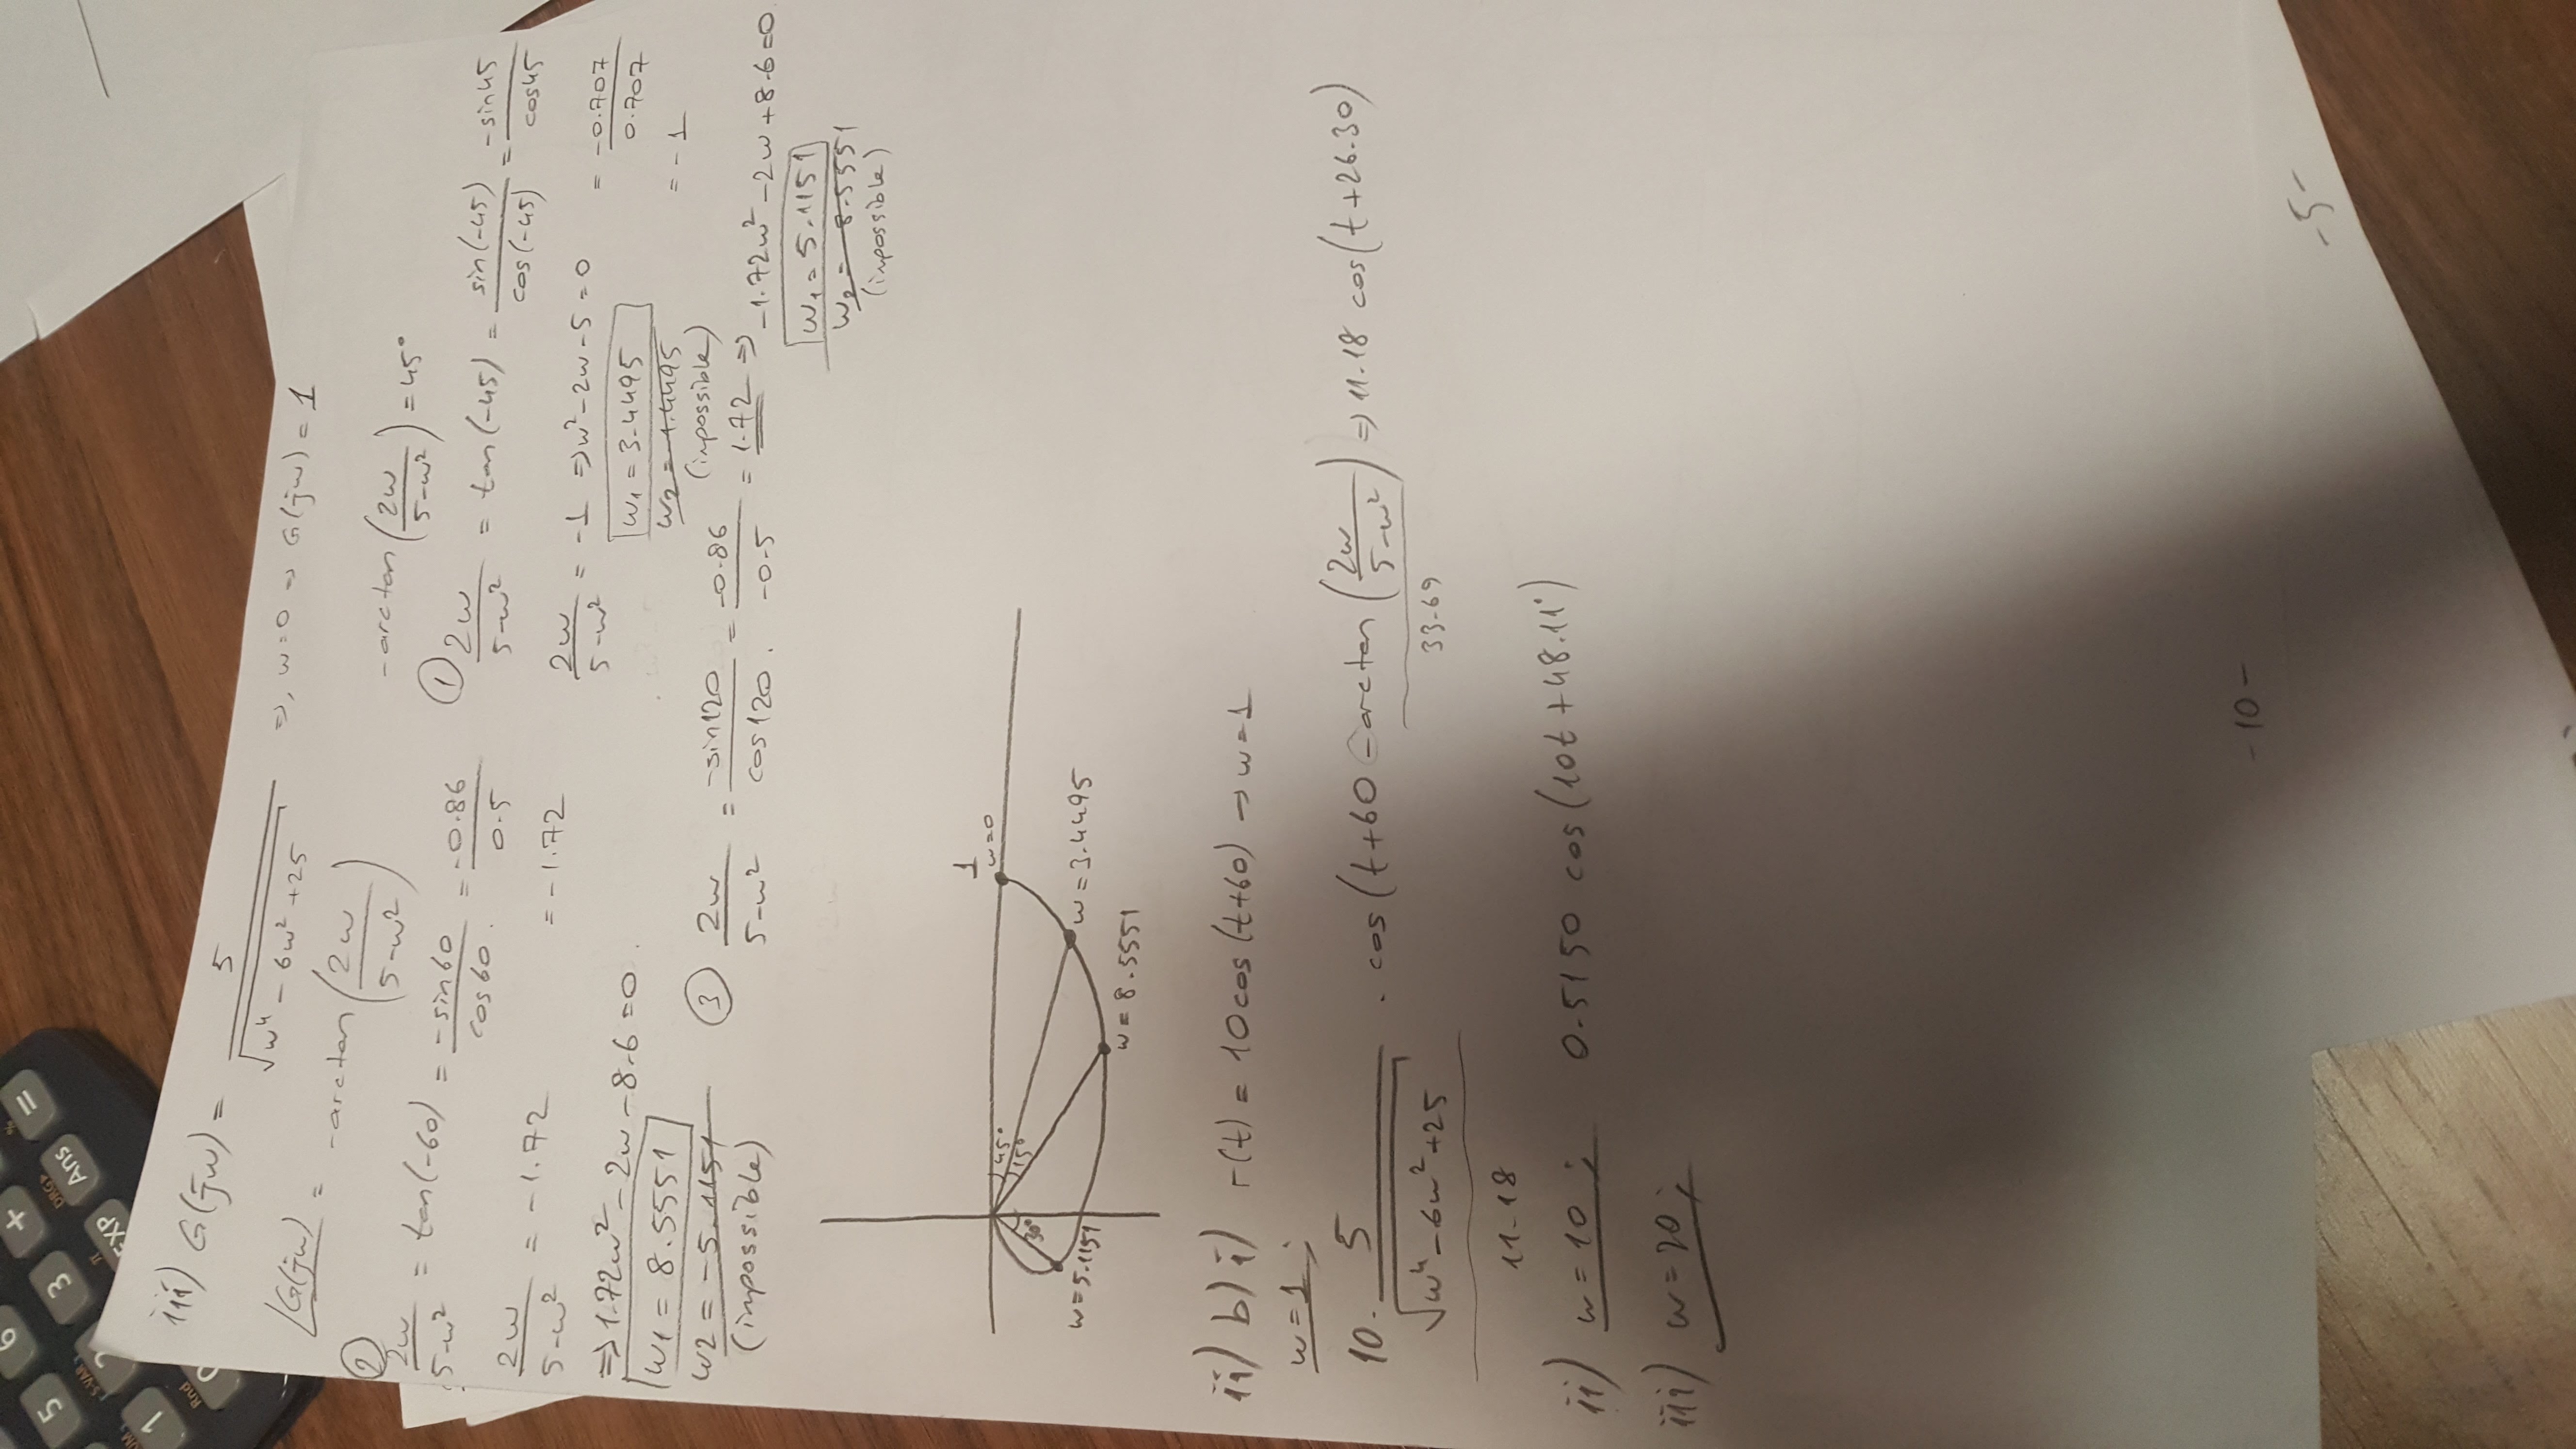 5 6 + % =
S-VAR 2 3 DRG▸ Ans
1 π EXP
Rnd 0
iii) G(jw) = 5 / √(w⁴ - 6w² + 25) ⇒, w=0 ⇒ G(jw) = 1
∠G(jw) = -arctan(2w / (5-w²))
-arctan(2w / (5-w²)) = 45°
② 2w / (5-w²) = tan(-60) = -sin60 / cos60. = -0.86 / 0.5
= -1.72
2w / (5-w²) = -1.72
⇒ 1.72w² - 2w - 8.6 = 0.
w1 = 8.5551
w2 = -5.1151
(inpossible)
① 2w / (5-w²) = tan(-45) = sin(-45) / cos(-45) = -sin45 / cos45
= -0.707 / 0.707
= -1
2w / (5-w²) = -1 ⇒ w² - 2w - 5 = 0
w1 = 3.4495
w2 = -1.4495
(inpossible)
③ 2w / (5-w²) = -sin120 / cos120. = -0.86 / -0.5 = 1.72 ⇒ -1.72w² - 2w + 8.6 = 0
w1 = 5.1151
w2 = -8.5551
(inpossible)
1
w=0
45°
15°
30°
w=5.1151
w = 3.4495
w = 8.5551
ii) b) i) r(t) = 10cos(t+60) → w=1
w=1;
10. 5 / √(w⁴ - 6w² + 25) . cos(t+60 -arctan(2w / (5-w²)) ⇒ 11.18 cos(t+26.30)
33.69
11.18
ii) w=10; 0.5150 cos(10t+48.11°)
iii) w=20;
-10-
-5-